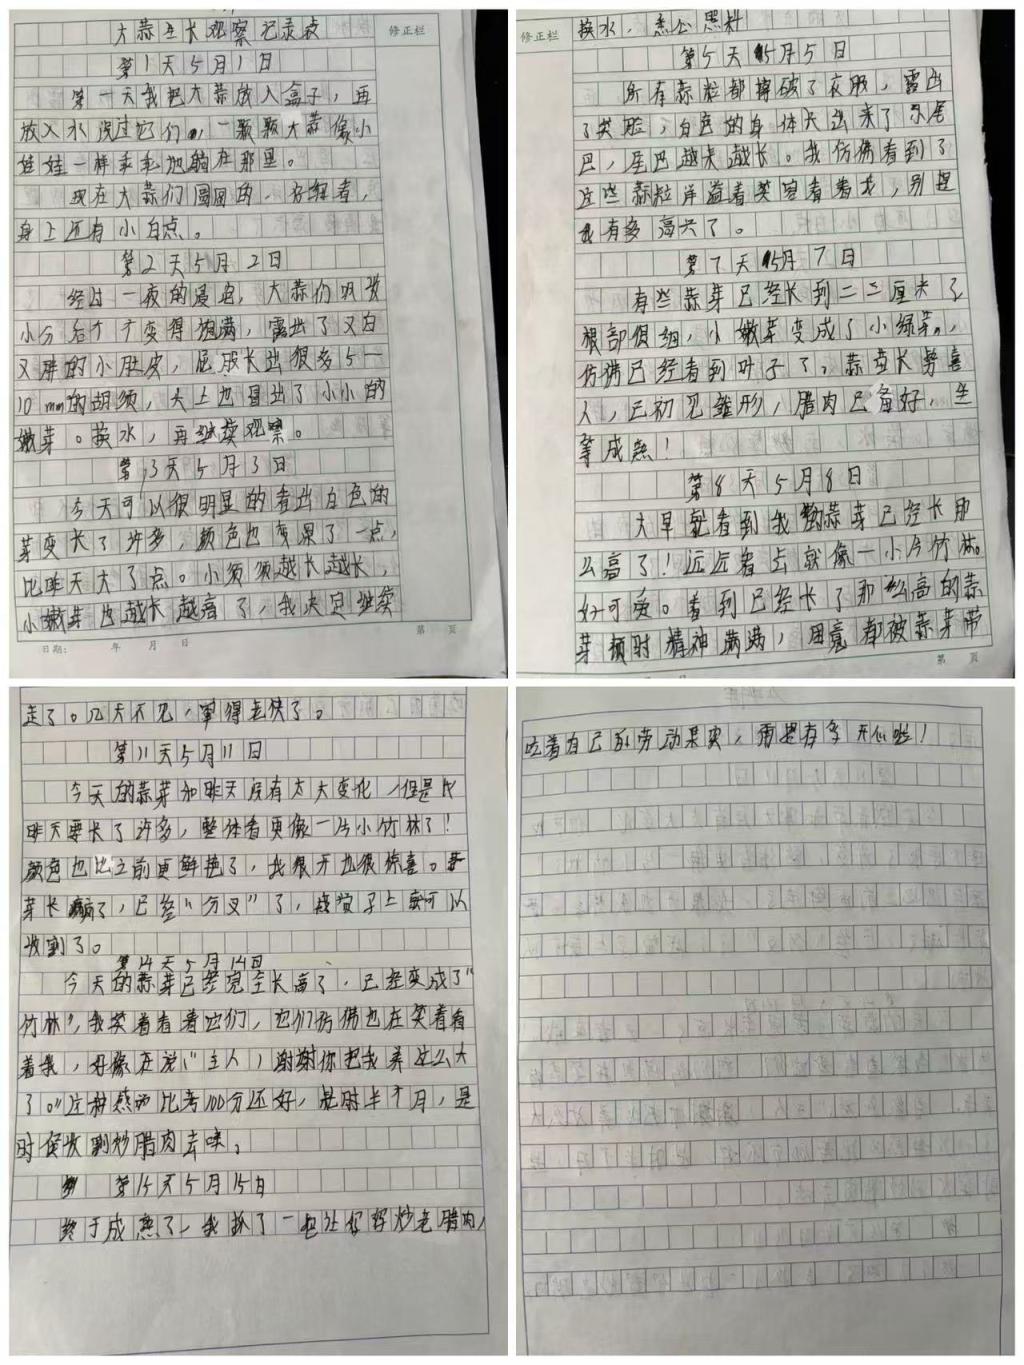 大蒜生长观察记录表
修正栏
第1天5月1日
第一天我把大蒜放入盒子，再
放入水没过它们，一颗颗大蒜像小
娃娃一样乖乖地躺在那里。
现在大蒜们圆圆的，仔细看，
身上还有小白点。
第2天5月2日
经过一夜的浸泡，大蒜们吸收
小分后个个变得饱满，露出了又白
又胖的小肚皮，屁股长出很多5一
10mm的胡须，头上也冒出了小小的
嫩芽。换水，再继续观察。
第3天5月3日
今天可以很明显的看出白色的
芽变长了许多，颜色也变黑了一点，
比昨天大了点。小须须越长越长，
小嫩芽也越长越高了，我决定继续
日期： 年 月 日
第 页
修正栏
换水，悉心照料
第5天5月5日
所有蒜粒都撑破了衣服，露出
了笑脸，白色的身体长出来了尾
巴，尾巴越来越长。我仿佛看到了
这些蒜粒洋溢着笑容看着我，别提
我有多高兴了。
第7天5月7日
有些蒜芽已经长到二三厘米了
根部很细，小嫩芽变成了小绿芽。，
仿佛已经看到叶子了，蒜苗长势喜
人，已初见雏形，腊肉已备好，坐
等成熟！
第8天5月8日
大早就看到我的蒜芽已经长那
么高了！远远看去就像一小片竹林。
好可爱。看到已经长了那么高的蒜
芽顿时精神满满，困意都被蒜芽带
第 页
走了。几天不见，窜得老快了。
第11天5月11日
今天的蒜芽和昨天没有太大变化，但是比
昨天要长了许多，整体看更像一片小竹林了！
颜色也比之前更鲜艳了，我很开也很惊喜。
芽长了，已经“分叉”了，感觉子上就可以
收割了。
第14天5月14日
今天的蒜芽已经完全长高了，已经变成了“
竹林”，我笑着看着它们，它们仿佛也在笑着看
着我，好像在说“主人，谢谢你把我养这么大
了。”这种感觉比考100分还好，是时半个月，是
时候收割炒腊肉去喽。
第15天5月15日
终于成熟了，我抓了一把让爷爷炒老腊肉，
吃着自己的劳动果实，别提有多开心啦！